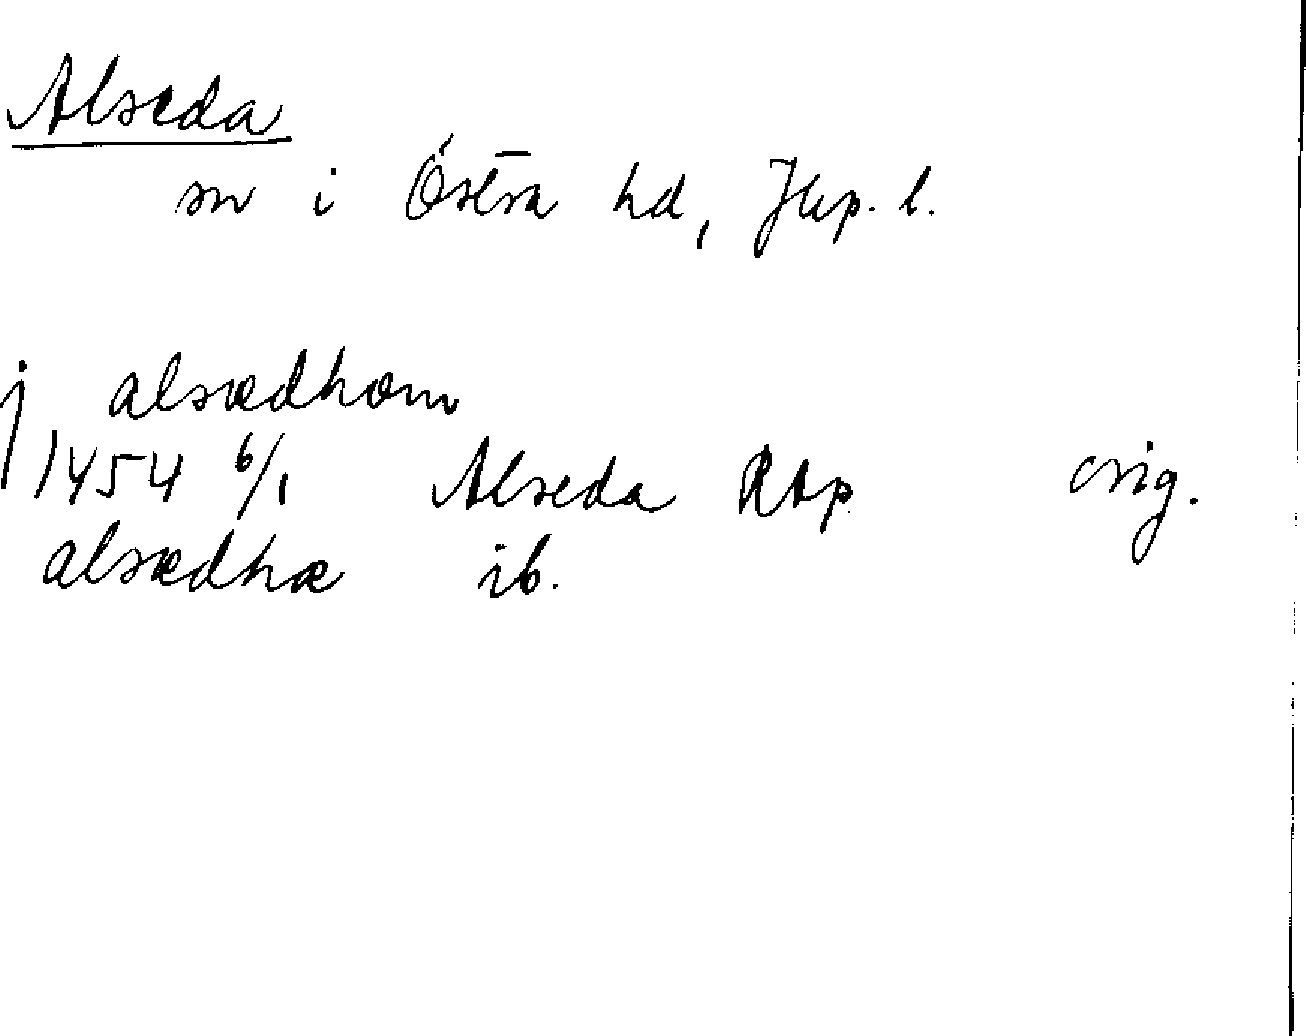 Alseda
sn i Östra hd, Jkp. l.
j alsædhom
1454 6/1 Alseda RAp orig.
alsædhæ ib.